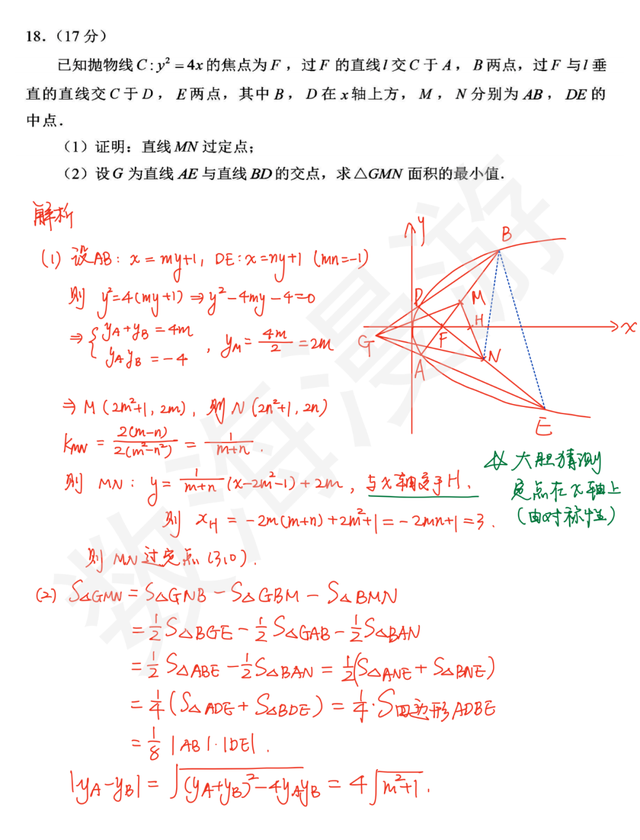 18.（17 分）
已知抛物线 C : y² = 4x 的焦点为 F ，过 F 的直线 l 交 C 于 A ， B 两点，过 F 与 l 垂
直的直线交 C 于 D ， E 两点，其中 B ， D 在 x 轴上方， M ， N 分别为 AB ， DE 的
中点．
（1）证明：直线 MN 过定点；
（2）设 G 为直线 AE 与直线 BD 的交点，求 △GMN 面积的最小值．
解析
(1) 设AB： x = my+1, DE: x=ny+1 (mn=-1)
则 y²=4(my+1) ⇒ y²-4my-4=0
⇒ { yA+yB = 4m
yAyB = -4 , yM = 4m/2 = 2m
⇒ M (2m²+1, 2m), 则 N (2n²+1, 2n)
kMN = 2(m-n)/2(m²-n²) = 1/(m+n) .
则 MN: y = 1/(m+n) (x-2m²-1) + 2m , 与x轴交于H.
则 xH = -2m(m+n)+2m²+1 = -2mn+1 = 3 .
则 MN 过定点 (3,0) .
大胆猜测
定点在x轴上
(由对称性)
(2) S△GMN = S△GNB - S△GBM - S△BMN
= 1/2 S△BGE - 1/2 S△GAB - 1/2 S△BAN
= 1/2 S△ABE - 1/2 S△BAN = 1/2 (S△ANE + S△BNE)
= 1/4 (S△ADE + S△BDE) = 1/4 · S四边形ADBE
= 1/8 |AB|·|DE| .
|yA-yB| = √((yA+yB)²-4yAyB) = 4√(m²+1) .
y
B
D
M
H
x
G
F
A
N
E
数海漫游